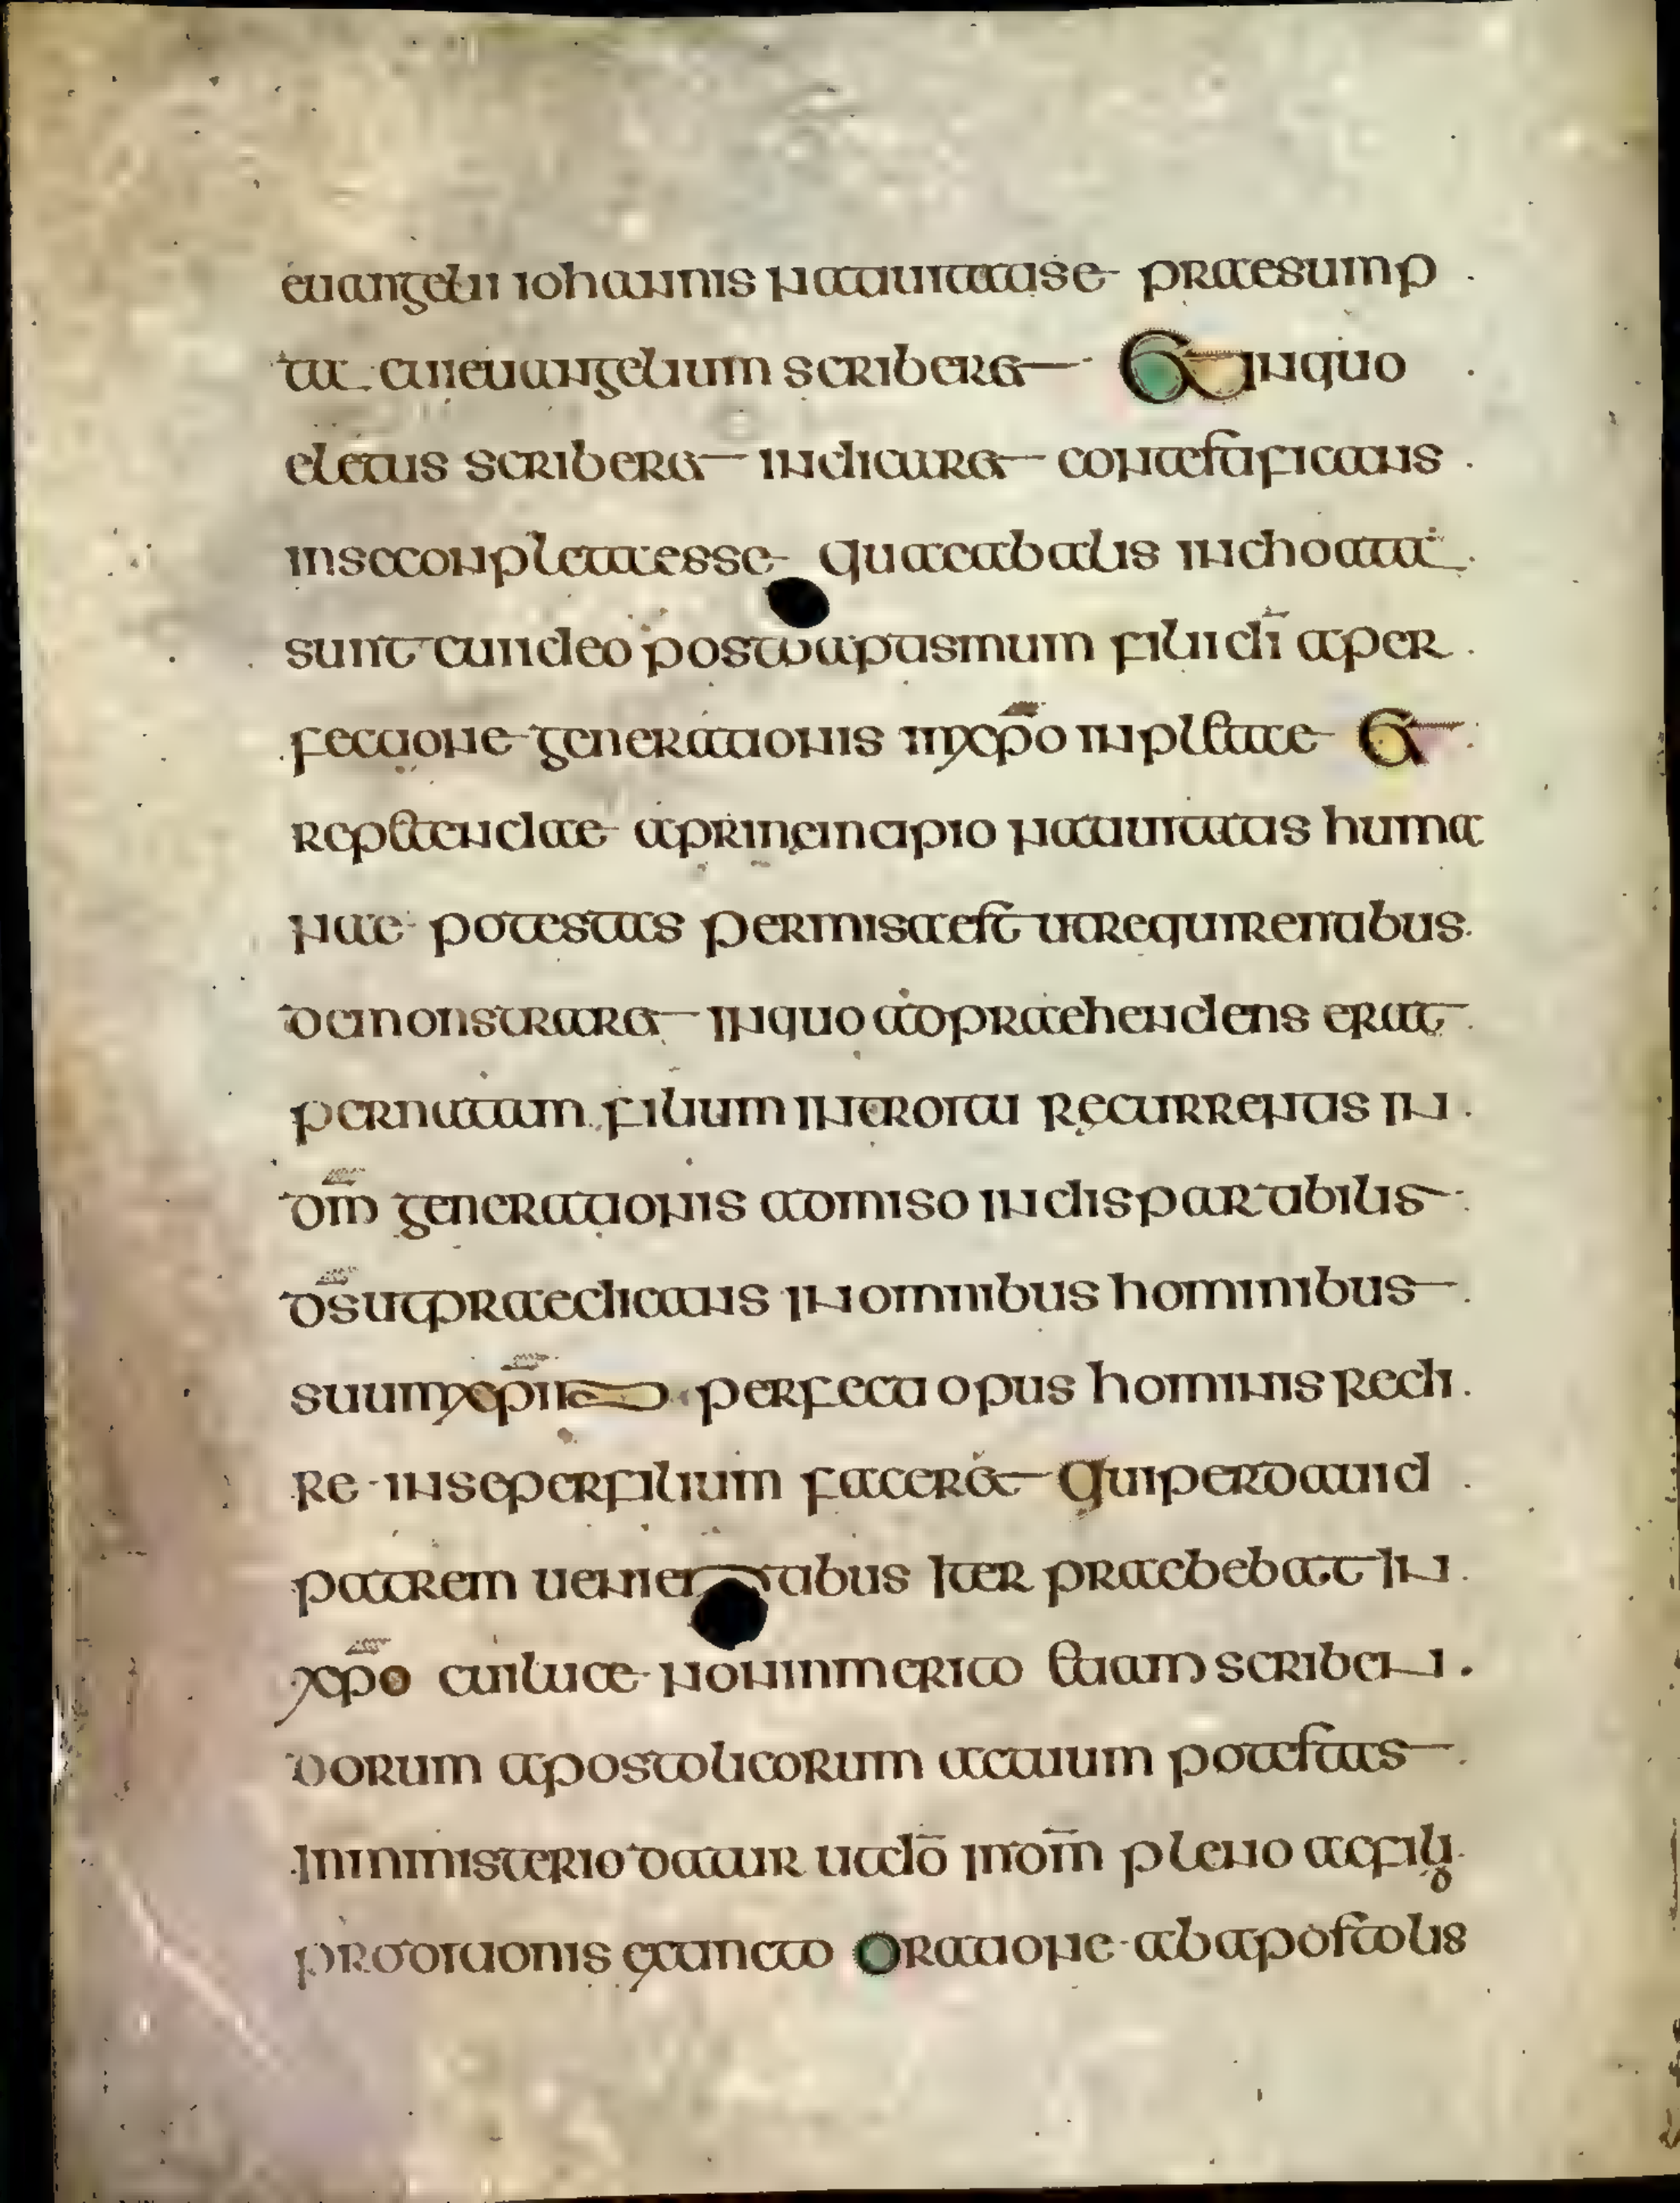 euangelii iohannis natiuitatise praesump
ta cui euangelium scriberet Et in quo
electus scriberet indicaret contestificans
in se conpleta esse quae ab aliis inchoata
sunt cui ideo post baptismum filii dī a per
fectione generationis in xp̄o inpletae Et
repetendae a principio natiuitatis huma
nae potestas permisa est ut requirentibus
demonstraret in quo adpraehendens erat
per natam filium introitu recurrentis in
dm̄ generationis admiso indispartibilis
ds̄ ut praedicans in omnibus hominibus
suum xp̄m perfecti opus hominis redi
re in se per filium faceret Qui per dauid
patrem uenientibus iter praebebat in
xp̄o cui lucae non inmerito etiam scriben
dorum apostolicorum actium potestas
in ministerio datur ut dō in dm̄ pleno ac filio
proditionis extincto Oratione ab apostolis